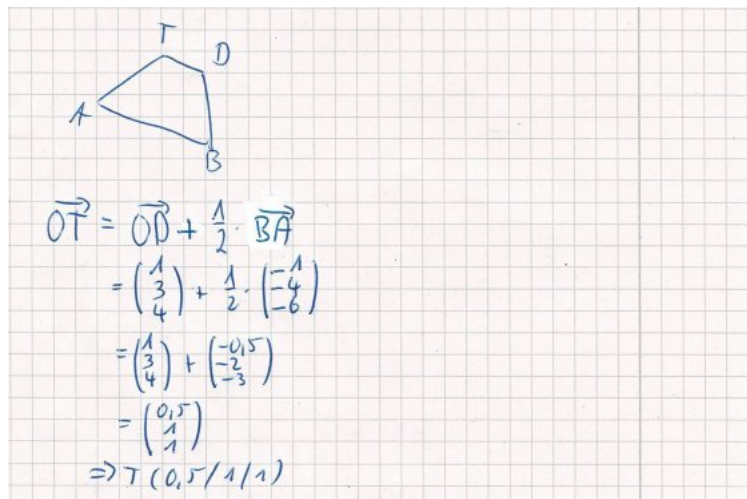 T
D
A
B
OT⃗ = OD⃗ + 1/2 · BA⃗
= (1 3 4) + 1/2 · (-1 -4 -6)
= (1 3 4) + (-0,5 -2 -3)
= (0,5 1 1)
=> T (0,5/1/1)